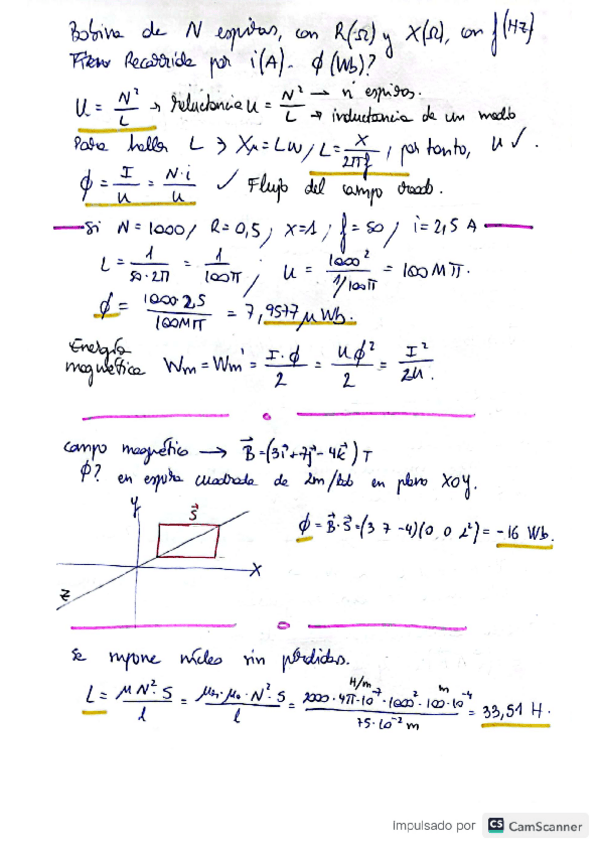 Bobina de N espiras, con R(Ω) y X(Ω), con f(Hz)
Recorrida por i(A). ϕ(Wb)?
U = N²/L → reluctancia U = N²/L → nº espiras. → inductancia de un medio
Para hallar L → Xμ = Lω / L = X/2πf / por tanto, U ✓.
ϕ = I/U = N·i/U ✓ Flujo del campo creado.
Si N = 1000 / R = 0,5 ; X = 1 ; f = 50 / i = 2,5 A
L = 1/50·2π = 1/100π ; U = 1000²/1/100π = 100Mπ.
ϕ = 1000·2,5/100Mπ = 7,9577 μWb.
Energía magnética Wm = Wm' = I·ϕ/2 = Uϕ²/2 = I²/2U.
Campo magnético → B⃗ = (3i⃗+7j⃗-4k⃗) T
ϕ? en espira cuadrada de 2m/lado en plano XOY.
Y
S⃗
ϕ = B⃗·S⃗ = (3 7 -4)(0 0 2²) = -16 Wb.
X
Z
Se supone núcleo sin pérdidas.
L = μN²S/l = μr·μ0·N²·S/l = 2000·4π·10⁻⁷ H/m·1000²·100·10⁻⁴ m/75·10⁻² m = 33,51 H.
Impulsado por CS CamScanner